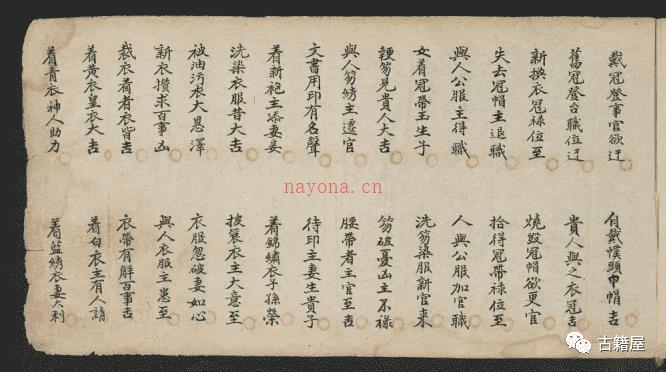 戴冠登事官欲迁
自戴幞頭巾帽吉
舊冠登台職位迁
貴人與之衣冠吉
新换衣冠禄位至
燒毀冠帽欲更官
失去冠帽主退職
拾得冠帶禄位至
與人公服主得職
人與公服加官職
女着冠帶玉生子
洗笏染服新官来
靴笏見貴人大吉
笏破憂凶主不禄
與人笏綉主遷官
腰帶者主官至吉
文書用印有名聲
待印主妻生貴子
着新袍主添妻妾
着錦繡衣子孫榮
洗染衣服昔大吉
披簑衣主大意至
被油污衣大恩澤
衣服忽破妻如心
新衣攢求百事凶
與人衣服主患至
裁衣着者衣皆吉
衣帶有解百事吉
着黄衣皇衣大吉
着白衣主有人請
着青衣神人助力
着藍綉衣妻大利
nayona.cn
古籍屋